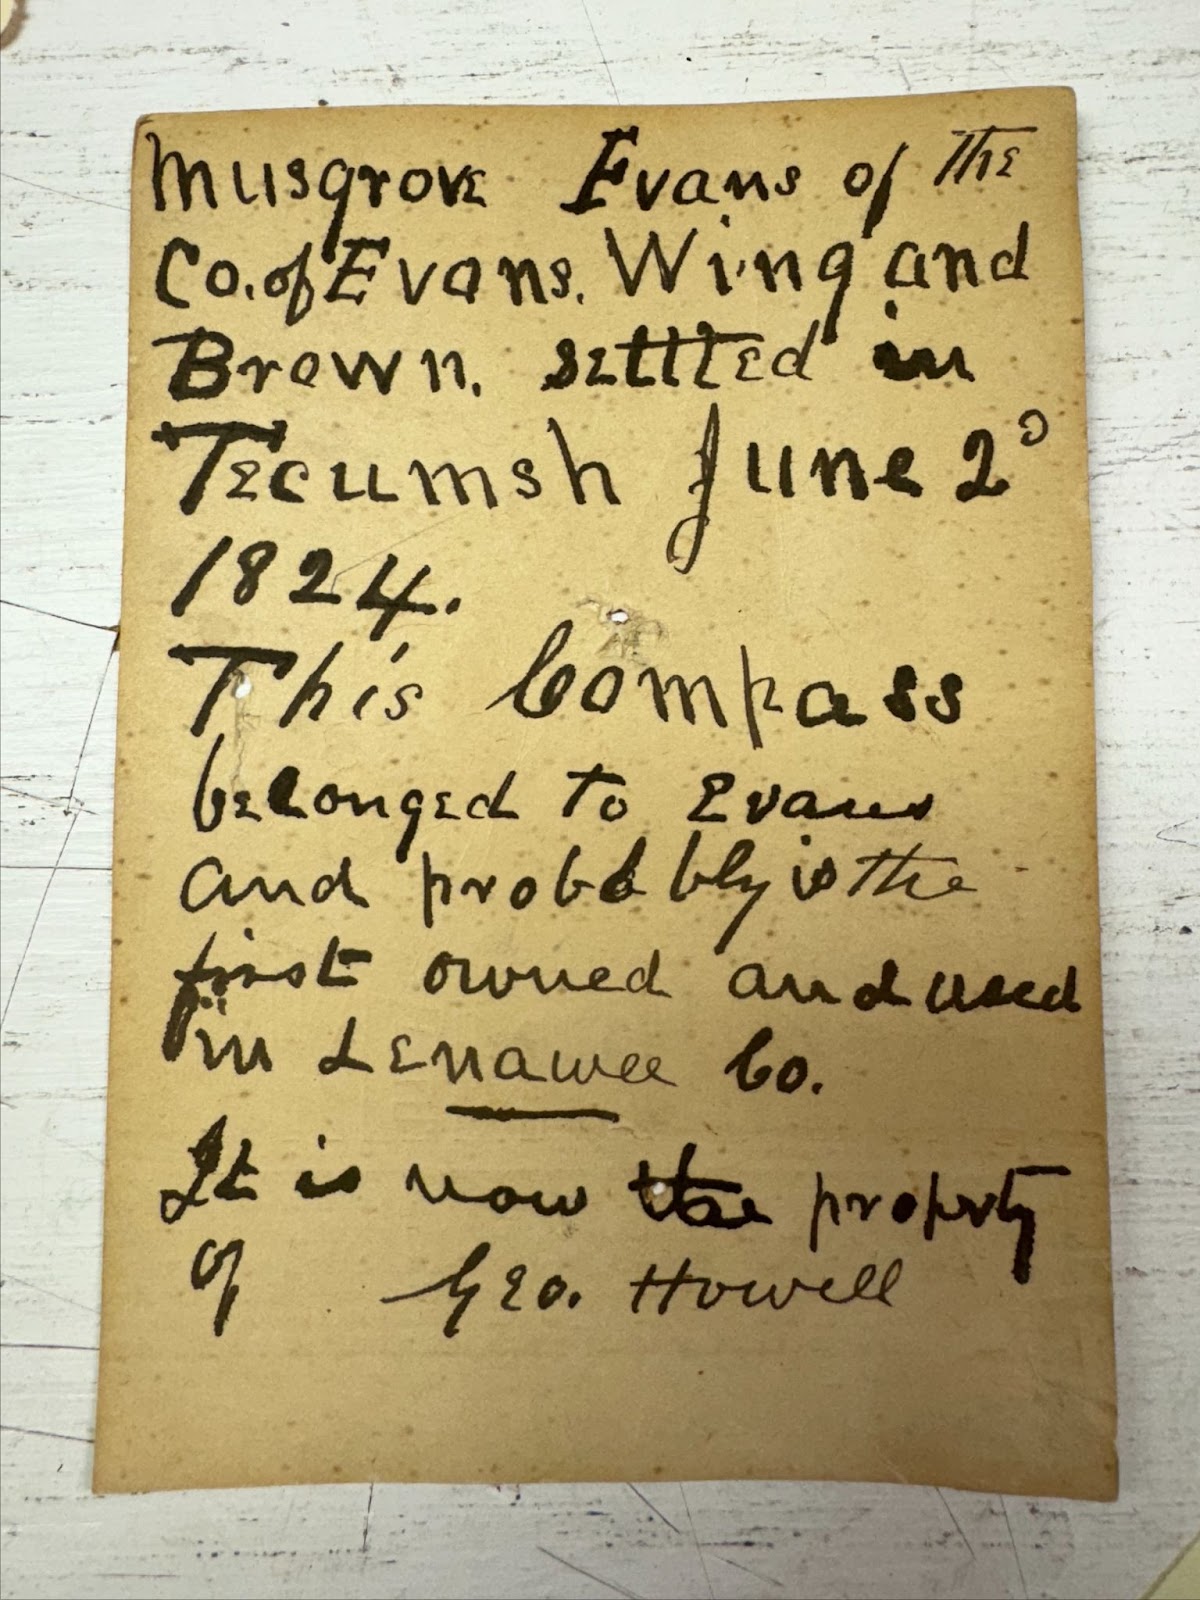 Musgrove Evans of The
Co. of Evans. Wing and
Brown. settled in
Tecumsh June 2°
1824.
This Compass
belonged to Evans
and probably is the
first owned and used
in Lenawee Co.
It is now the property
of Geo. Howell